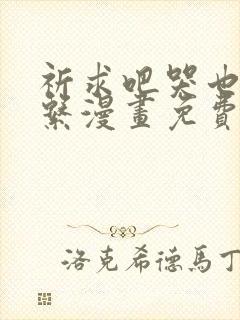 祈求吧哭也
繫漫畫免費
洛克希德馬丁